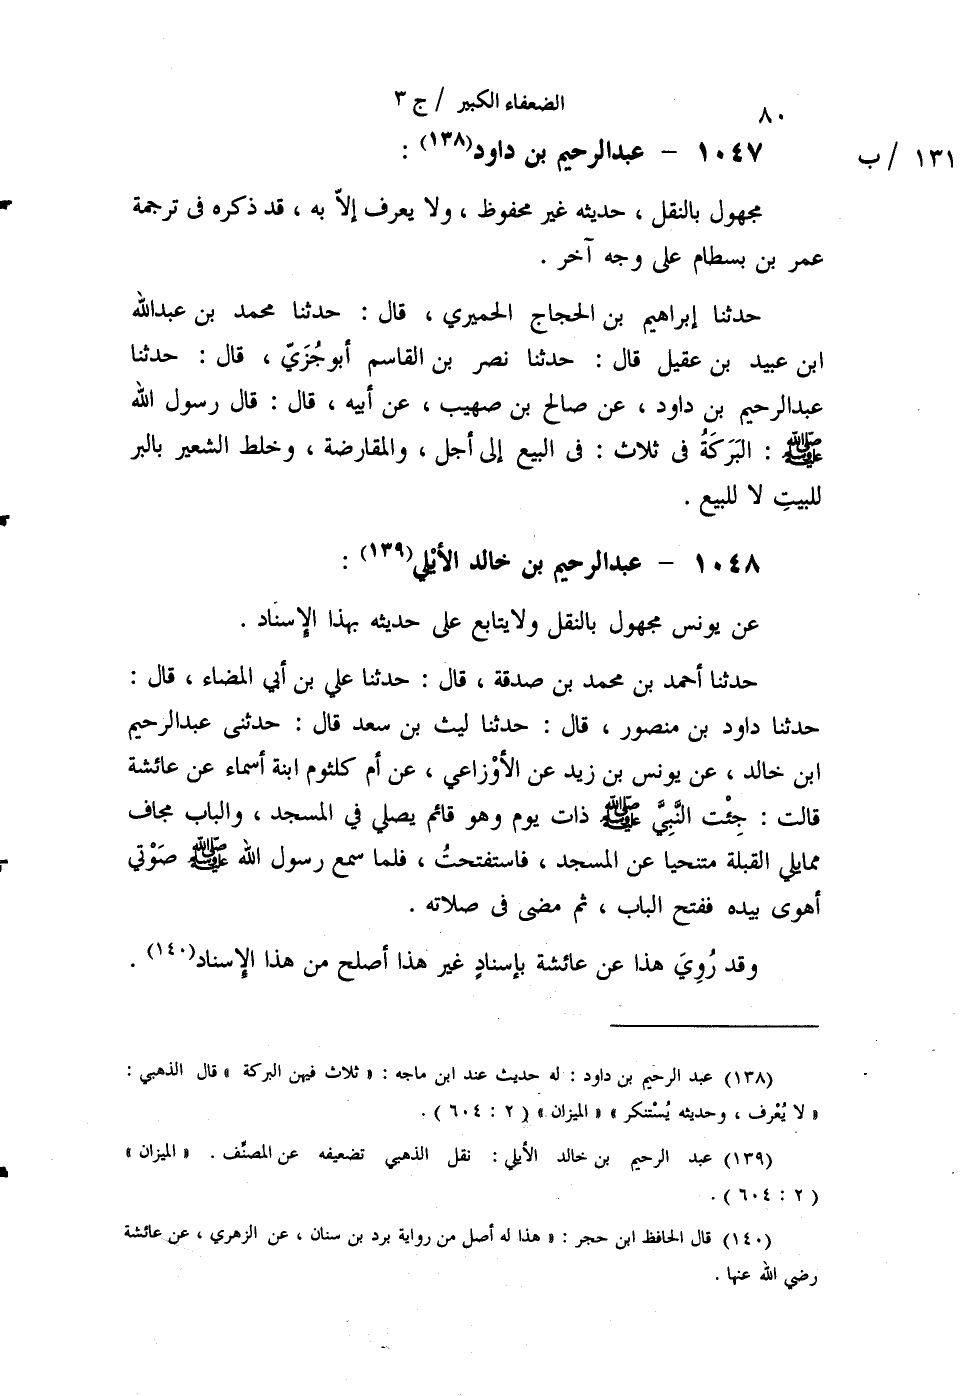 الضعفاء الكبير / ج ٣
٨٠
١٠٤٧ – عبدالرحيم بن داود(١٣٨) :
١٣١ / ب
مجهول بالنقل ، حديثه غير محفوظ ، ولا يعرف إلاّ به ، قد ذكره فى ترجمة
عمر بن بسطام على وجه آخر .
حدثنا إبراهيم بن الحجاج الحميري ، قال : حدثنا محمد بن عبدالله
ابن عبيد بن عقيل قال : حدثنا نصر بن القاسم أبوجُزَيّ ، قال : حدثنا
عبدالرحيم بن داود ، عن صالح بن صهيب ، عن أبيه ، قال : قال رسول الله
ﷺ : البَرَكَةُ فى ثلاث : فى البيع إلى أجل ، والمقارضة ، وخلط الشعير بالبر
للبيتِ لا للبيع .
١٠٤٨ – عبدالرحيم بن خالد الأيْلي(١٣٩) :
عن يونس مجهول بالنقل ولايتابع على حديثه بهذا الإسناد .
حدثنا أحمد بن محمد بن صدقة ، قال : حدثنا علي بن أبي المضاء ، قال :
حدثنا داود بن منصور ، قال : حدثنا ليث بن سعد قال : حدثنى عبدالرحيم
ابن خالد ، عن يونس بن زيد عن الأوْزاعي ، عن أم كلثوم ابنة أسماء عن عائشة
قالت : جِئْت النَّبِيَّ ﷺ ذات يوم وهو قائم يصلي في المسجد ، والباب مجاف
ممايلي القبلة متنحيا عن المسجد ، فاستفتحتُ ، فلما سمع رسول الله ﷺ صَوْتي
أهوى بيده ففتح الباب ، ثم مضى فى صلاته .
وقد رُوِيَ هذا عن عائشة بإسنادٍ غير هذا أصلح من هذا الإسناد(١٤٠) .
(١٣٨) عبد الرحيم بن داود : له حديث عند ابن ماجه : « ثلاث فيهن البركة » قال الذهبي :
« لا يُعْرف ، وحديثه يُسْتنكر » « الميزان » ( ٢ : ٦٠٤ ) .
(١٣٩) عبد الرحيم بن خالد الأيلي : نقل الذهبي تضعيفه عن المصنِّف . « الميزان »
( ٢ : ٦٠٤ ) .
(١٤٠) قال الحافظ ابن حجر : « هذا له أصل من رواية برد بن سنان ، عن الزهري ، عن عائشة
رضي الله عنها .